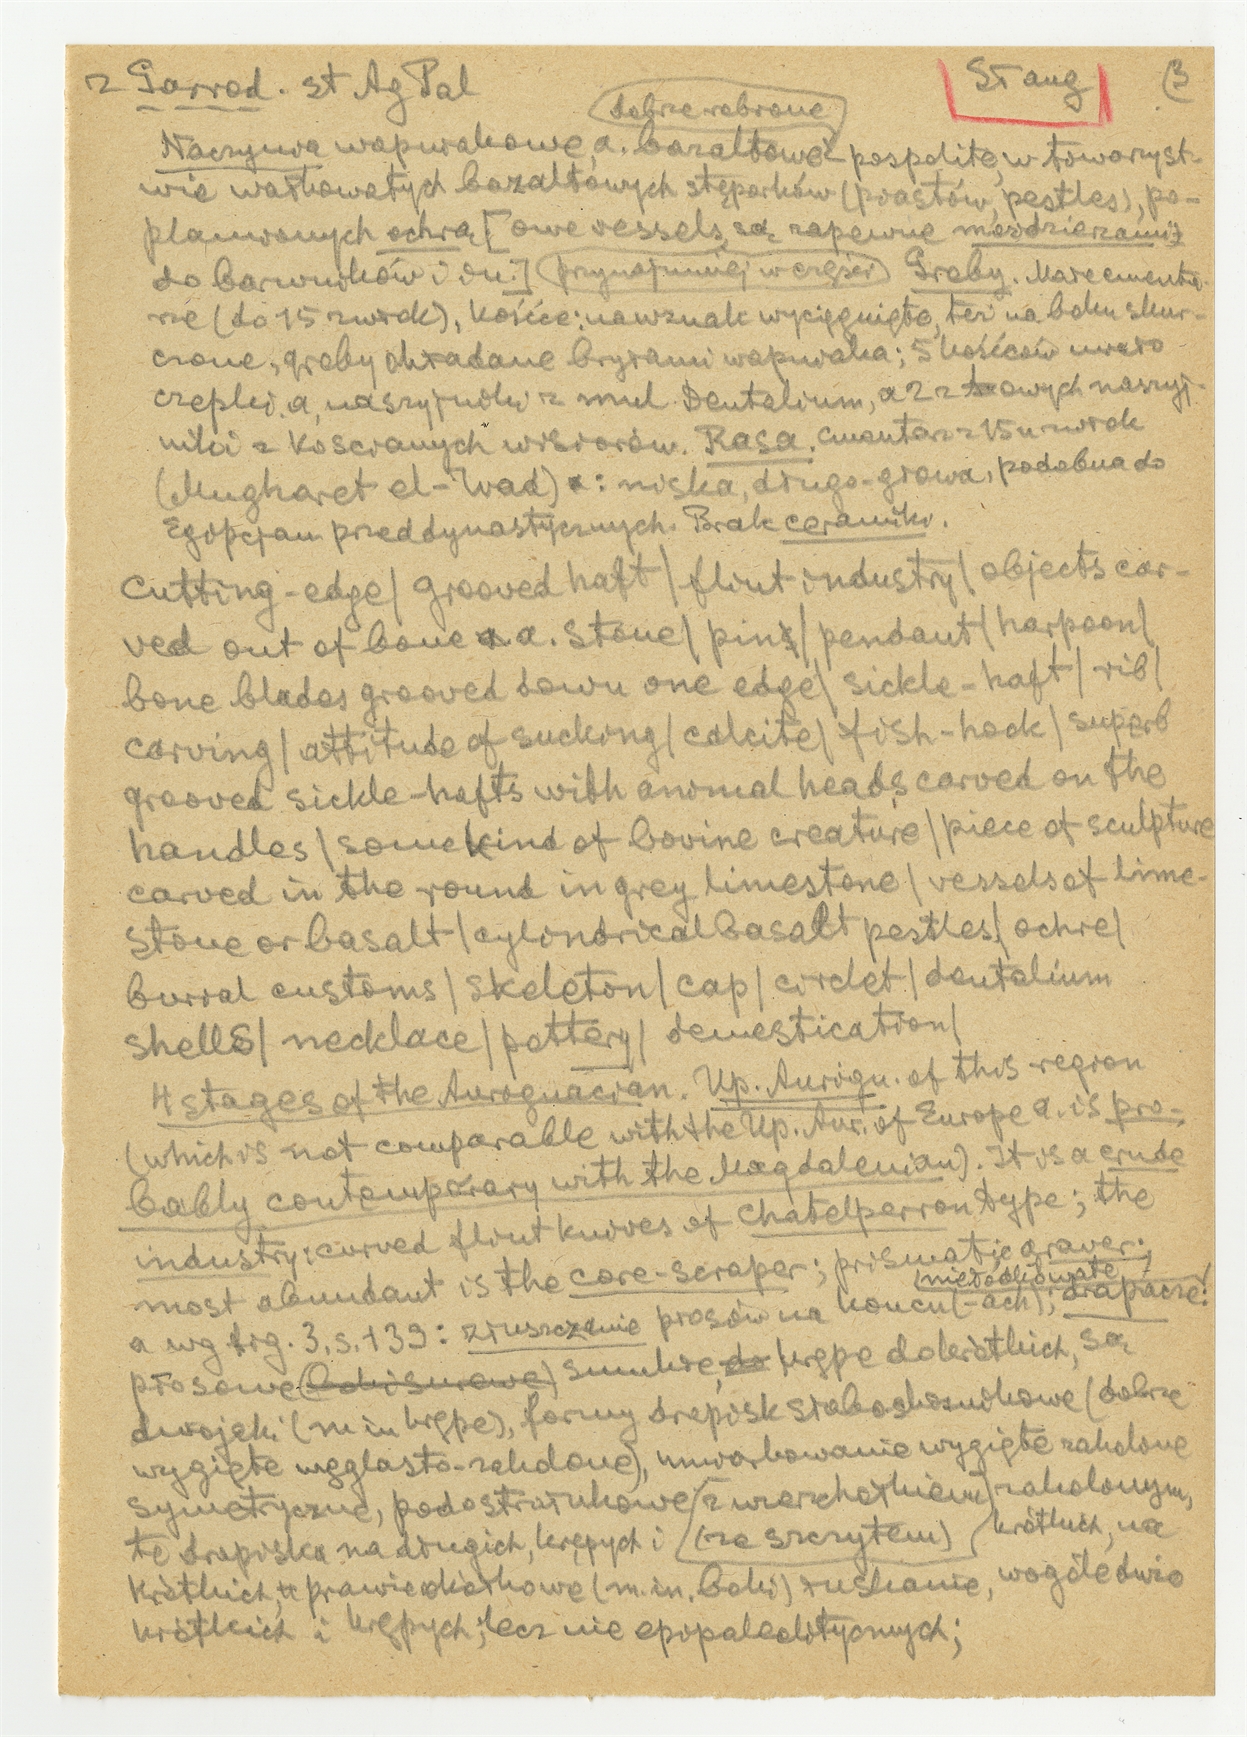 z Garrod. St Ag Pal
St ang
(3
dobrze robione
Naczynia wapniakowe a. bazaltowe pospolite, w towarzyst-
wie wałkowatych bazaltowych stęporków (prostów, pestles), po-
plamionych ochrą [owe vessels są zapewne moździerzami
do barwników i in.] (przynajmniej w części) Groby. Małe cmenta-
rze (do 15 zwłok), kośćce: nawznak wyciągnięte, też na boku skur-
czone, groby okładane bryłami wapniaka; 5 kośćców miało
czepki a. naszyjniki z mul. Dentalium, a 2 z owych naszyj-
niki z kościanych wisiorów. Rasa. cmentarz z 15 zwłok
(Mugharet el-Wad): niska, długo-głowa, podobna do
Egipcjan przeddynastycznych. Brak ceramiki.
Cutting-edge/ grooved haft/ flint industry/ objects car-
ved out of bone a. stone/ pins/ pendant/ harpoon/
bone blades grooved down one edge/ sickle-haft/ rib/
carving/ attitude of sucking/ calcite/ fish-hook/ superb
grooved sickle-hafts with animal heads carved on the
handles/ some kind of bovine creature/ piece of sculpture
carved in the round in grey limestone/ vessels of lime-
stone or basalt/ cylindrical basalt pestles/ ochre/
burial customs/ skeleton/ cap/ circlet/ dentalium
shells/ necklace/ pottery/ domestication/
4 stages of the Aurignacian. Up. Aurign. of this region
(which is not comparable with the Up. Aur. of Europe a. is pro-
bably contemporary with the Magdalenian). It is a crude
industry: curved flint knives of Chatelperron type; the
most abundant is the core-scraper; prismatic graver;
(nieodłupate
a wg fig. 3, s. 139: złuszczanie płosów na końcu (-ach); drapacze:
płosowe (boki surowe) smukłe, do krępe do krótkich, są
dwojaki (m in krępe), formy drapisk słaboskośnikowe (dobrze
wygięte węglasto-zakolone), umiarkowanie wygięte zakolone
symetryczne, podostrołukowe (z wierzchołkiem) zakolonym,
te drapiska na długich, krępych i (ze szczytem) krótkich, na
krótkich, prawie okołkowe (m.in. boki) łuskanie, wogóle dwie
krótkich i krępych; lecz nie epipaleolitycznych;